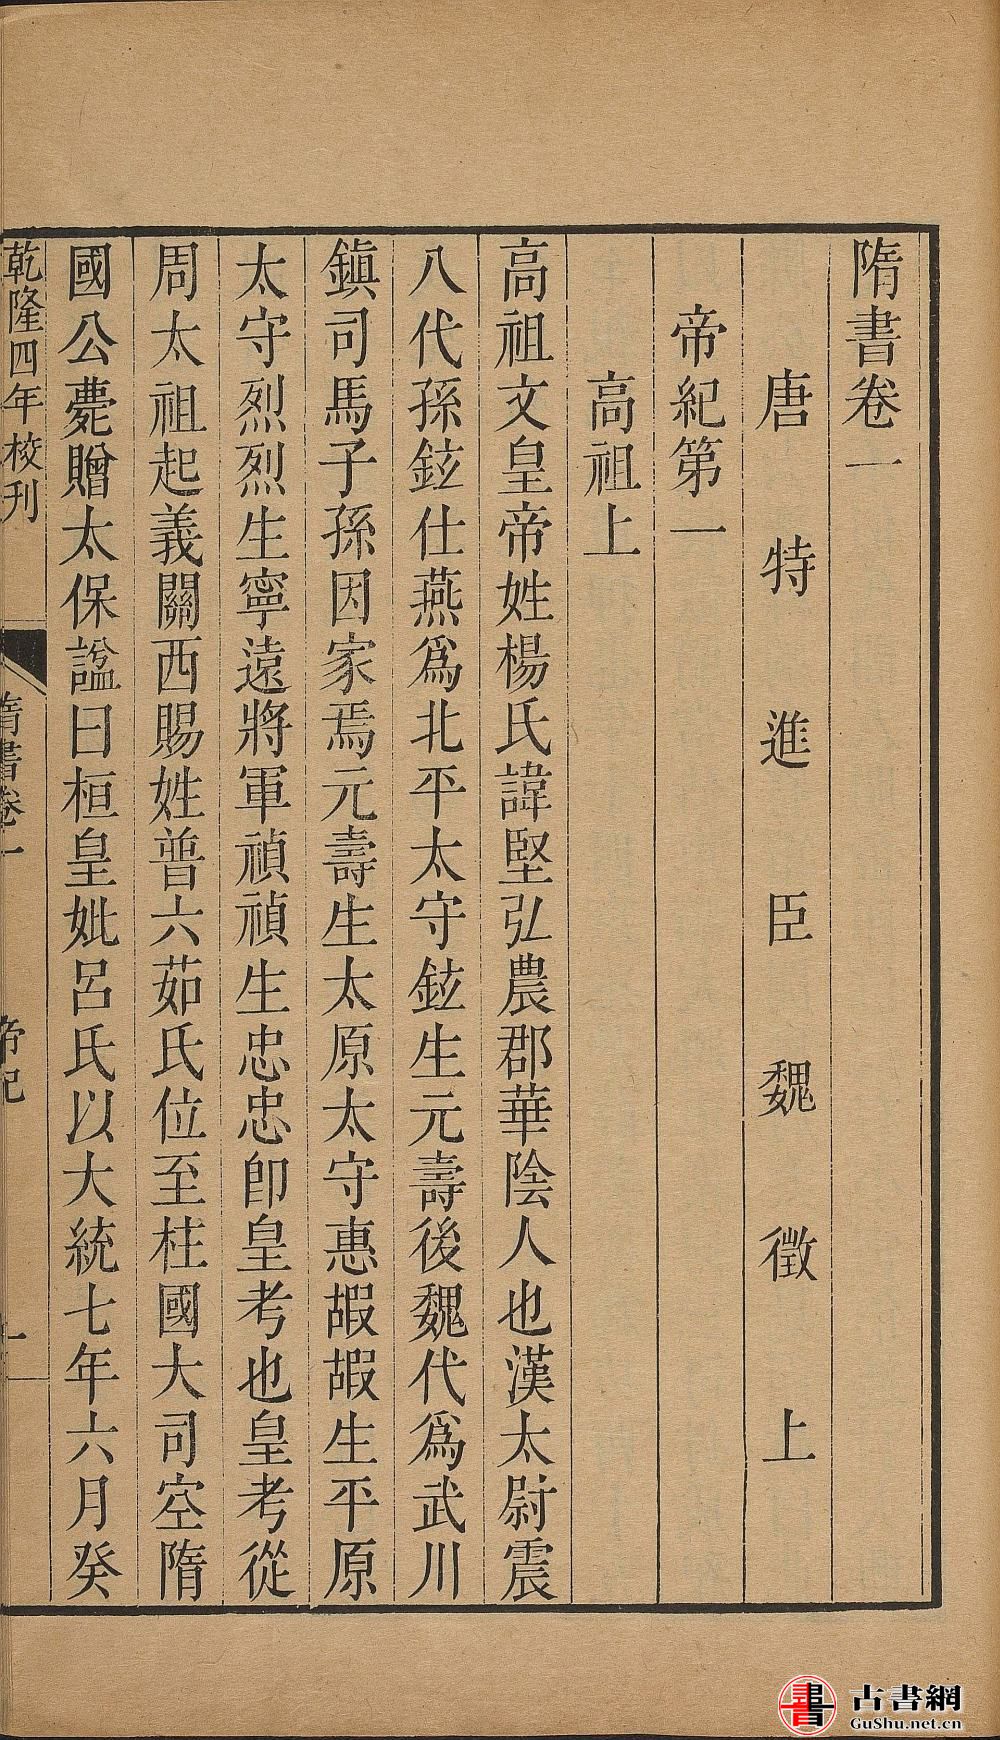 隋書卷一
唐特進臣魏徵上
帝紀第一
高祖上
高祖文皇帝姓楊氏諱堅弘農郡華陰人也漢太尉震
八代孫鉉仕燕爲北平太守鉉生元壽後魏代爲武川
鎮司馬子孫因家焉元壽生太原太守惠嘏嘏生平原
太守烈烈生寧遠將軍禎禎生忠忠卽皇考也皇考從
周太祖起義關西賜姓普六茹氏位至柱國大司空隋
國公薨贈太保諡曰桓皇妣呂氏以大統七年六月癸
乾隆四年校刊
隋書卷一
帝紀
一
古書網
GuShu.net.cn